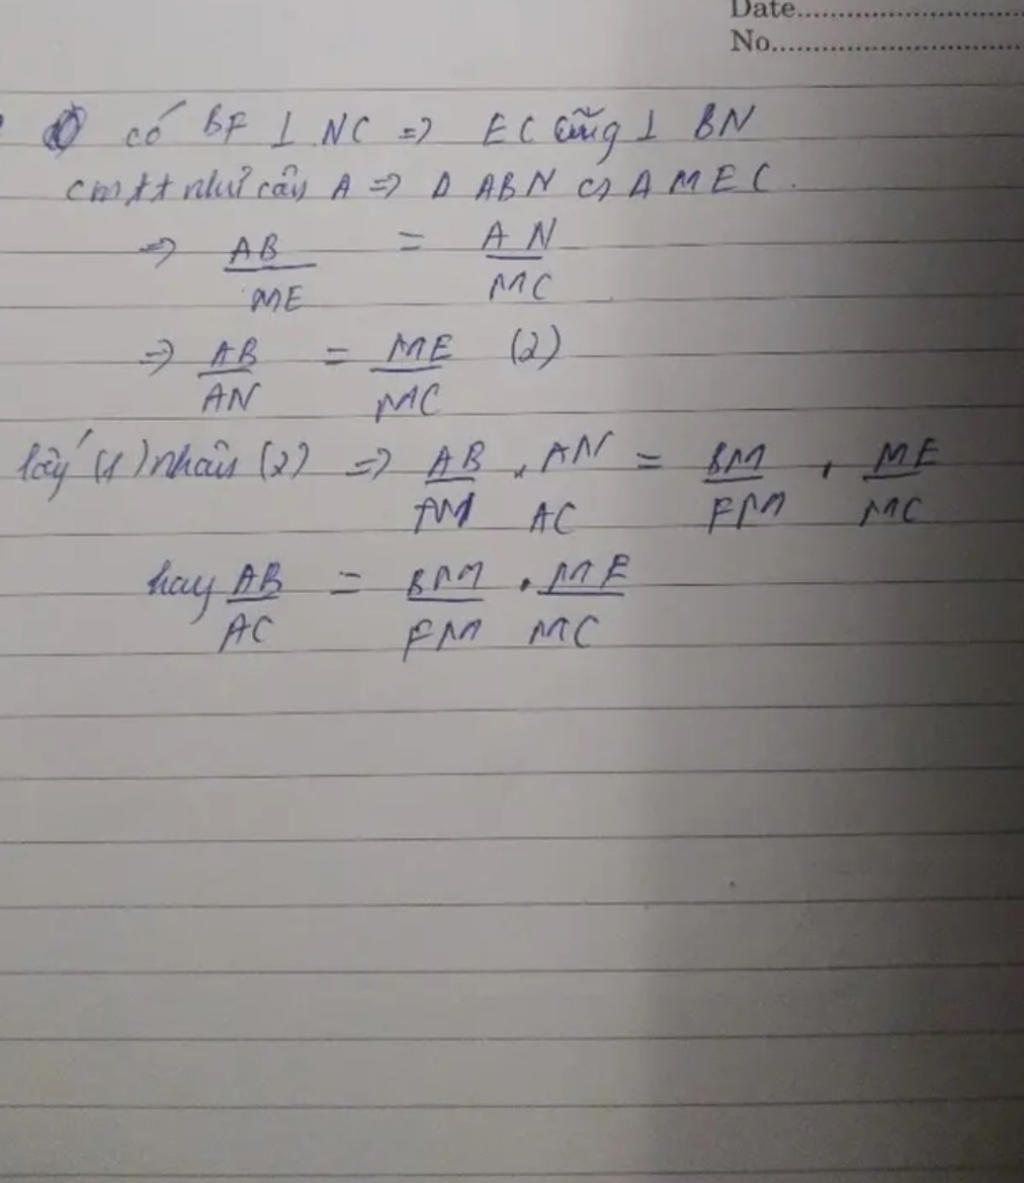 Date
No
có BF ⊥ NC => EC cũng ⊥ BN
cmtt như câu A => Δ ABN ∽ Δ MEC.
=> AB/ME = AN/MC
=> AB/AN = ME/MC (2)
lấy (1) nhân (2) => AB/AN . AN/AC = BM/FM . ME/MC
hay AB/AC = BM/FM . ME/MC